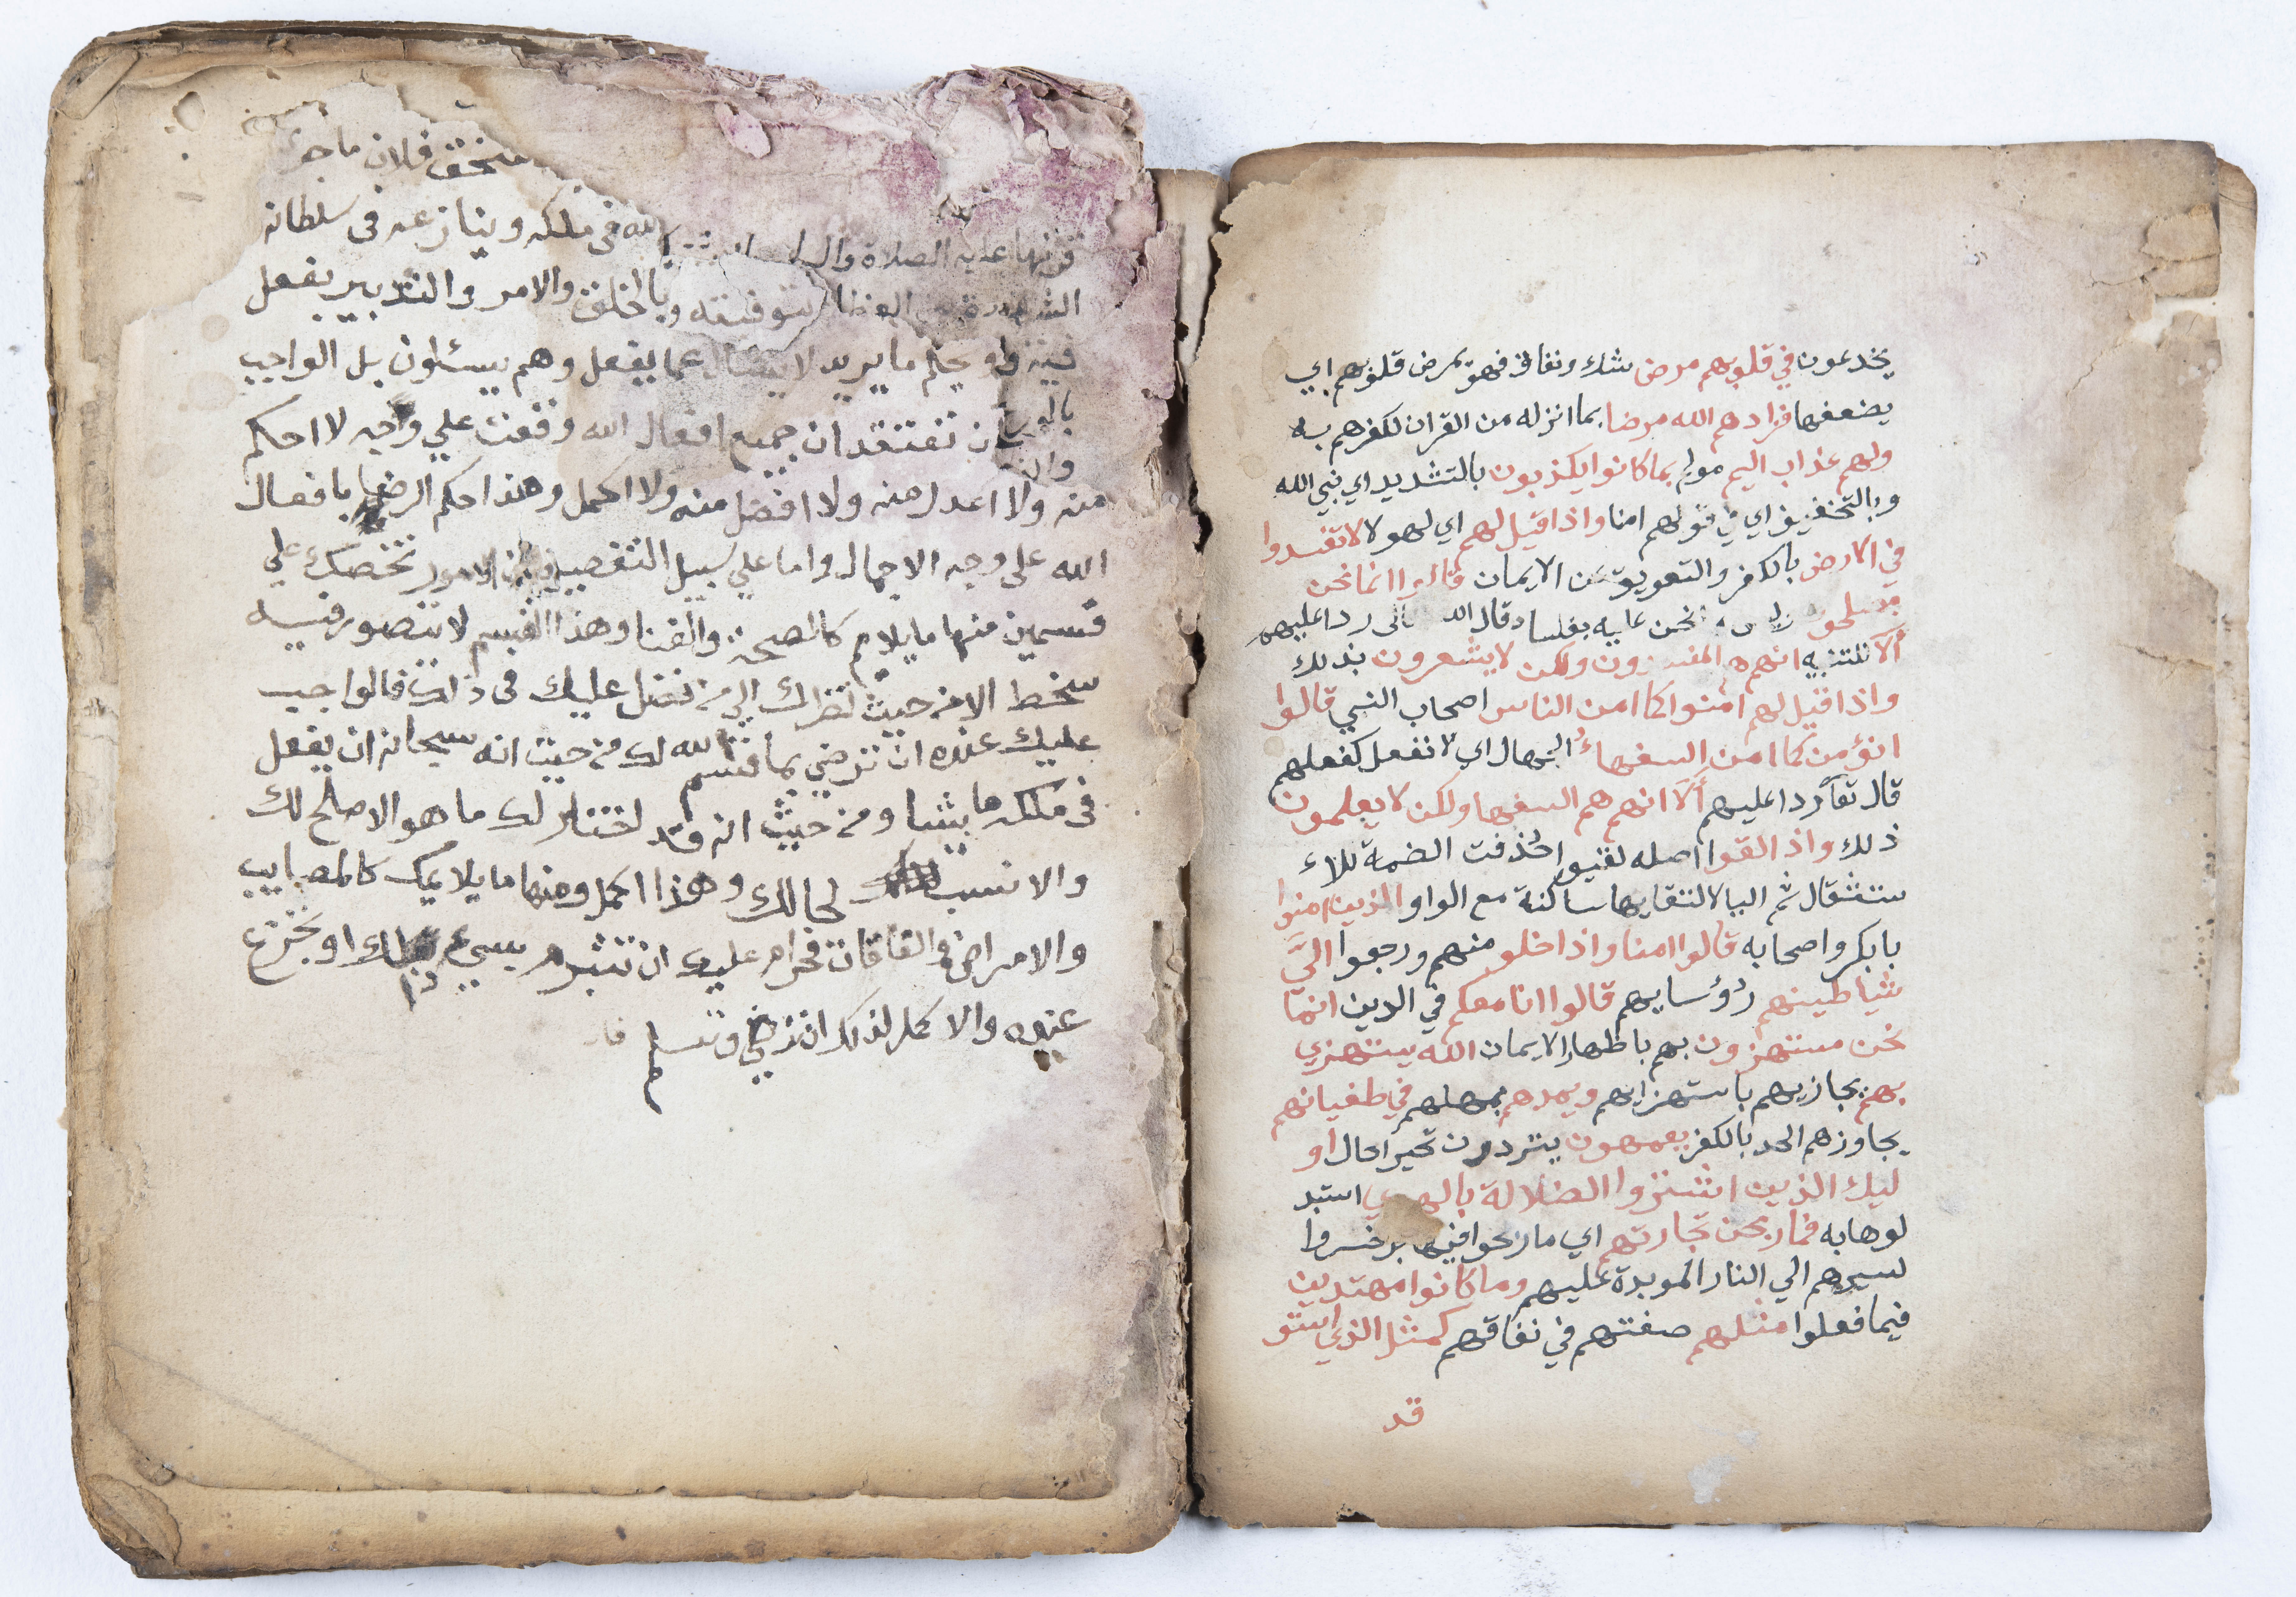 يخدعون في قلوبهم مرض شك ونفاق فهو يمرض قلوبهم اي
يضعفها فزادهم الله مرضا بما انزله من القران لكفرهم به
ولهم عذاب اليم مولم بما كانوا يكذبون بالتشديد اي نبي الله
وبالتخفيف اي في قولهم امنا واذا قيل لهم اي لهولا لا تفسدوا
في الارض بالكفر والتعويق عن الايمان قالوا انما نحن
مصلحون نحن عليه بفساد قال الله ردا عليهم
ألا للتنبيه انهم هم المفسدون ولكن لا يشعرون بذلك
واذا قيل لهم امنوا كما امن الناس اصحاب النبي قالوا
انؤمن كما امن السفهاء الجهال اي لا نفعل كفعلهم
قال تعا ردا عليهم ألا انهم هم السفها ولكن لا يعلمون
ذلك واذا لقوا اصله لقيوا حُذفت الضمة للاء
ستثقال ثم اليا لالتقايها ساكنة مع الواو الذين امنوا
بابكر واصحابه قالوا امنا واذا خلو منهم ورجعوا الي
شياطينهم رؤسايهم قالوا انا معكم في الدين انما
نحن مستهزون بهم باظهار الايمان الله يستهزي
بهم يجازيهم باستهزايهم ويمدهم يمهلهم في طغيانهم
يجاوزهم الحد بالكفر يعمهون يترددون تحيرا حال او
ليك الذين اشتروا الضلالة بالهدي استبد
لوها به فما ربحت تجارتهم اي ما ربحوا فيها بل خسروا
لسيرهم الي النار الموبدة عليهم وما كانوا مهتدين
فيما فعلوا مثلهم صفتهم في نفاقهم كمثل الذي استو
قد
سخق فلان ما جرى
الله في ملكه وينازعه في سلطانه
قونها عليه الصلاة وال
بتوفيقه وبالخلق والامر والتدبير يفعل
ويحكم ما يريد لا يسال عما يفعل وهم يسئلون بل الواجب
ان تعتقد ان جميع افعال الله وقعت علي وجه لا احكم
منه ولا اعدل منه ولا افضل منه ولا اكمل وهذا حكم الرضا بافعال
الله علي وجه الاجمال واما علي سبيل التفصيل الامور تخصك علي
قسمين منها ما يلايم كالصحة والغنا وهذا القسم لا يتصور فيه
سخط الا من حيث نظرك الي من فضل عليك في ذلك فالواجب
عليك عنده ان ترضي بما قسم الله لك من حيث انه سبحانه ان يفعل
في ملكه ما يشا ومن حيث انه قد اختار لك ما هو الاصلح لك
والانسب لحالك وهذا اكمل ومنها ما يلايمك كالمصايب
والامراض والفاقات فحرام عليك ان تتبرم بسيء ذلك او تجزع
عنده والاكمل لذلك ان ترضي وتسلم